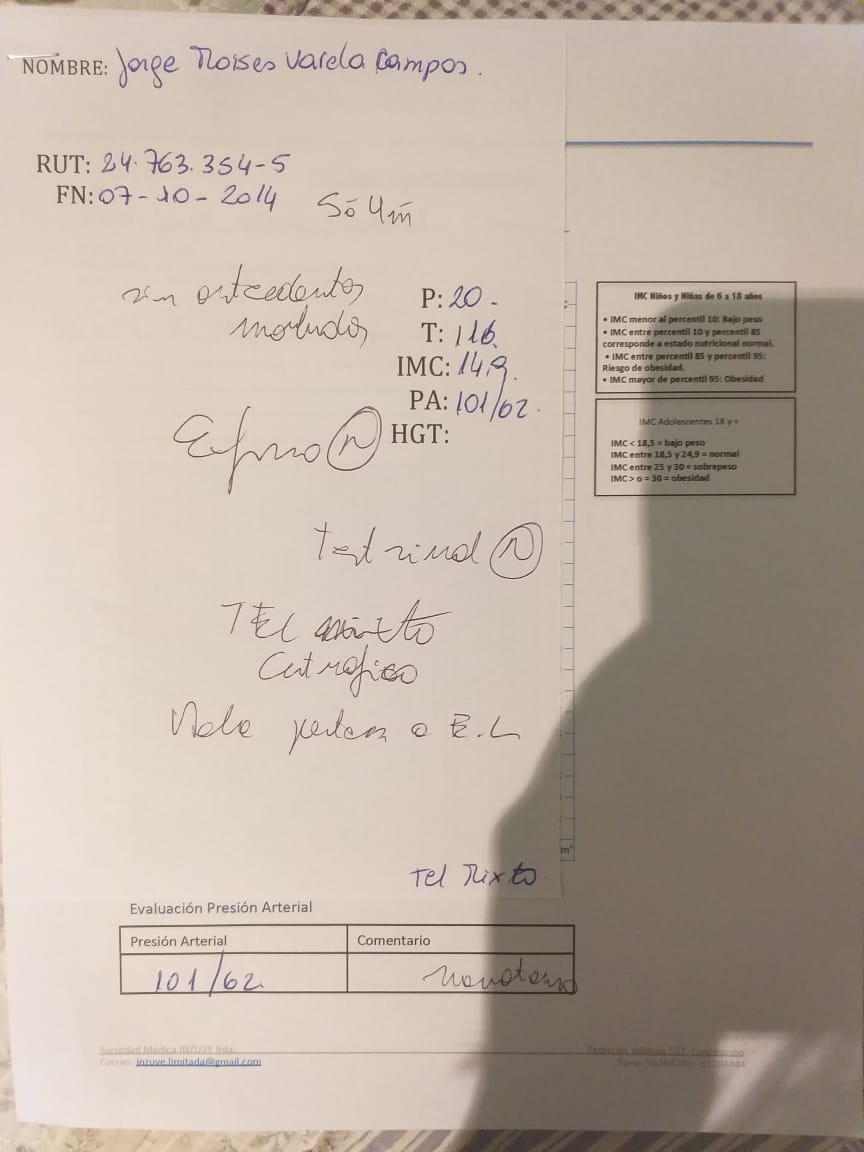 NOMBRE: Jorge Moises Varela Campos.
RUT: 24.763.354-5
FN: 07-10-2014
5ā 4m̄
sin antecedentes
morbidos
P: 20.
T: 116.
IMC: 14,9.
PA: 101/62.
HGT:
E. fisico (N)
test rinal (N)
TEL mixto
Eutrofico
TEL Mixto
IMC Niños y Niñas de 6 a 18 años
• IMC menor al percentil 10: Bajo peso
• IMC entre percentil 10 y percentil 85
corresponde a estado nutricional normal.
• IMC entre percentil 85 y percentil 95:
Riesgo de obesidad.
• IMC mayor de percentil 95: Obesidad
IMC Adolescentes 18 y +
IMC < 18,5 = bajo peso
IMC entre 18,5 y 24,9 = normal
IMC entre 25 y 30 = sobrepeso
IMC > o = 30 = obesidad
m²
Evaluación Presión Arterial
Presión Arterial
Comentario
101/62.
Normotenso
Sociedad Médica INZUVE ltda.
Correo: inzuve.limitada@gmail.com
Pedro de Valdivia 557, Concepción